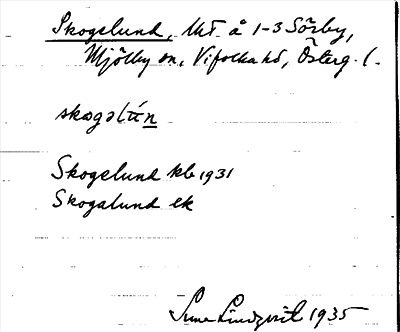 Skogslund, Uti å 1-3 Sörby,
Mjölby sn, Vifolka hd, Österg. l.
skogəlún
Skogslund kb 1931
Skogalund ek
Sune Lindqvist 1935